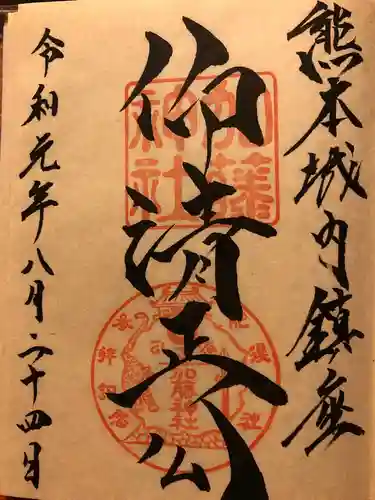 熊本城内鎮座
仰清正公
加藤神社
加藤神社
令和元年八月二十四日